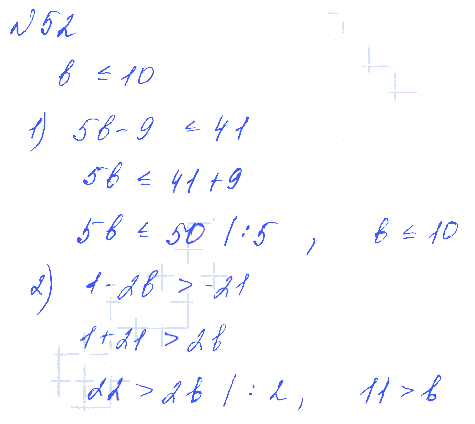 №52
в ≤ 10
1) 5в - 9 ≤ 41
5в ≤ 41 + 9
5в ≤ 50 | : 5 , в ≤ 10
2) 1 - 2в > -21
1 + 21 > 2в
22 > 2в | : 2 , 11 > в